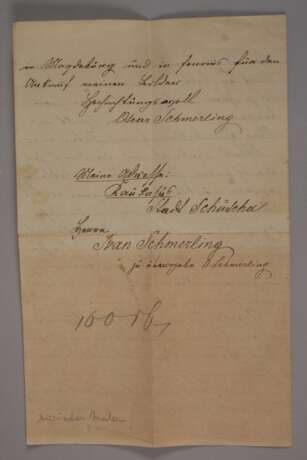 in Magdeburg und in ferners für den
Ankauf meiner Bilder
Hochachtungsvoll
Oscar Schmerling
Meine Adresse:
Kaukasus
Stadt Schuscha
Herrn
Ivan Schmerling
zu übergeben O Schmerling
100 Rb
Maler